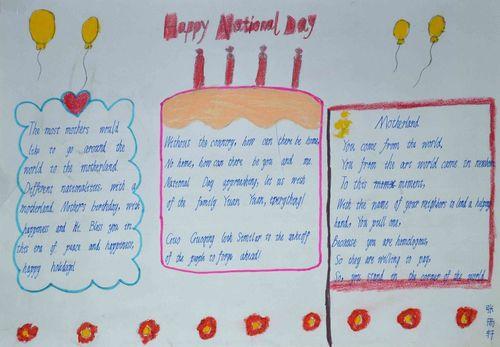 Happy National Day
The most mothers would
like to go around the
world to the motherland.
Different nationalities, wish a
motherland. Mother's birthday, wish
happiness and Hi. Bless you in
this era of peace and happiness,
happy holidays!
Without the country, how can there be home,
No home, how can there be you and me.
National Day approaching, let us wish
of the family Yuan Yuan, everything!
to the takeoff
of the people to forge ahead!
Motherland
You come from the world,
You from the art world come in
To this moment,
With the name of your neighbors to lend a helping
hand, You pull me,
Because you are homologous,
So they are willing to pay,
So you stand in the corner of the world
张雨轩